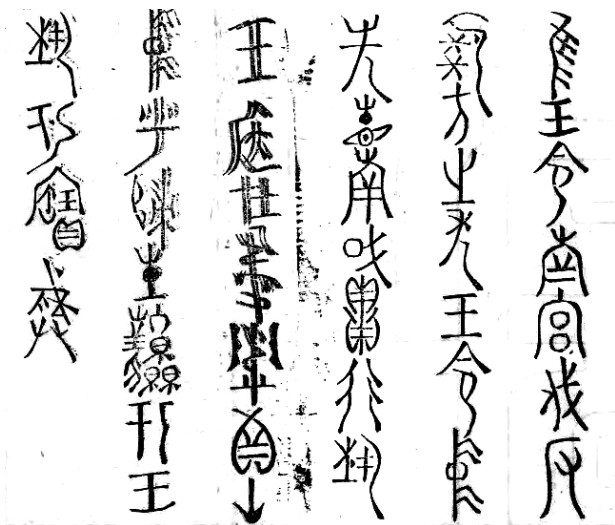 隹王令南宮伐反
虎方之年王令中
先省南或貫行埶
王应
中乎歸生鳳于王
埶于寶彝